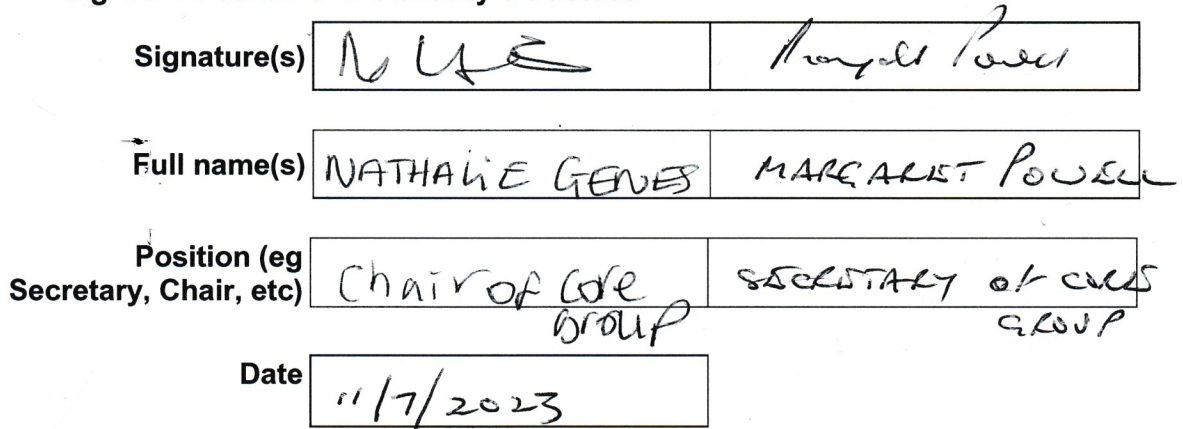 Signature(s)
Full name(s) NATHALIE GENES MARGARET POWELL
Position (eg
Secretary, Chair, etc) Chair of Core SECRETARY of CORE
Group GROUP
Date 11/7/2023